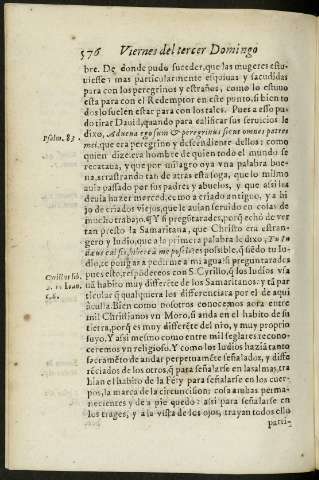 576 Viernes del tercer Domingo
bre. De donde pudo suceder, que las mugeres estu-
uiesse: mas particularmente esquiuas y sacudidas
para con los peregrinos y estraños, como lo estuuo
esta para con el Redemptor en este punto, si bien to
dos lo suelen estar para con los tales. Pues a esso pu-
do tirar Dauid, quando para calificar sus seruicios le
Psalm. 83. dixo, Aduena ego sum & peregrinus sicut omnes patres
mei, que era peregrino y descendiente dellos: como
quien dize era hombre de quien todo el mundo se
recataua, y que por milagro oya vna palabra bue-
na, arrastrando tan de atras esta soga, que lo mismo
auia passado por sus padres y abuelos, y que assi las
deuia hazer merced, como a criado antiguo, ya hi
jo de criados viejos, que le auian seruido en cosas de
mucho trabajo. ¶ Y si pregũtarades, porq̃ echò de ver
tan presto la Samaritana, que Christo era estran-
gero y Iudio, que a la primera palabra le dixo, Tu Iu
dæus cùm sis, bibere à me possible, q̃ siẽdo tu Iu-
dio, te pongas a pedirme a mi agua? si preguntarades
Cyrill. ut sib. pues esto, respõderos con S. Cyrillo, q̃ los Iudios vsa
2. in Ioan. uã habito muy diferẽte de los Samaritanos: y tã par
c.6. ticular q̃ qualquiera los diferenciara por el de aqui
acullà. Bien como nosotros conocemos aora entre
mil Christianos vn Moro, si anda en el habito de su
tierra, porq̃ es muy diferẽte del nio, y muy proprio
suyo. Y assi mesmo como entre mil seglares le cono-
ceremos vn religioso. Y como los Iudios hazia tanto
sacramẽto de andar perpetuamẽte señalados, y diffe
rẽciados de los otros, q̃ para señalarse en las almas, tra
hian el habito de la Fè; y para señalarse en los cuer-
pos, la marca de la circuncision; cosa ambas perma-
necientes y de a pie quedo: assi para señalarse en
los trages, y a la vista de los ojos, trayan todos ello
parti-